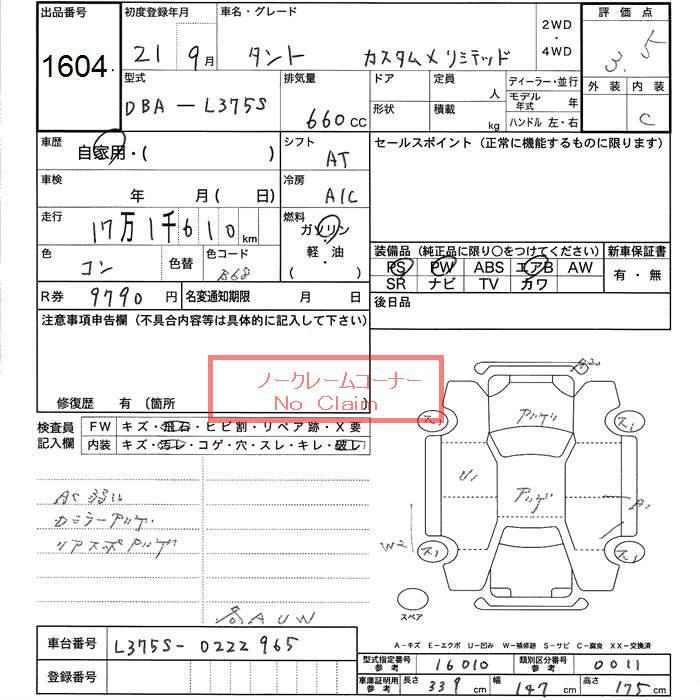 出品番号
1604
初度登録年月
21 9月
車名・グレード
タント カスタムXリミテッド
2WD
・
4WD
評価点
3.5
外装 内装
C
型式
DBA-L375S
排気量
660cc
ドア
形状
定員
人
積載
kg
ディーラー・並行
モデル年式 年
ハンドル 左・右
車歴
自家用・( )
シフト
AT
セールスポイント(正常に機能するものに限ります)
車検
年 月( 日)
冷房
A/C
走行
17万1千610km
燃料
ガソリン
軽・油
( )
色
コン
色替
色コード
B68
装備品(純正品に限り○をつけてください)
新車保証書
PS PW ABS エアB AW
SR ナビ TV カワ
有・無
R券 9790円
名変通知期限 月 日
後日品
注意事項申告欄(不具合内容等は具体的に記入して下さい)
ノークレームコーナー
No Claim
修復歴 有(箇所
検査員記入欄
FW キズ・飛石・ヒビ割・リペア跡・X要
内装 キズ・汚レ・コゲ・穴・スレ・キレ・破レ
AC弱い
Dミラーアルゲ
リアスポアルゲ
各AUW
アルゲ
アルゲ
U1
A1
W2
ス1
ス1
ス1
ス1
スペア
A-キズ E-エクボ U-凹み W-補修跡 S-サビ C-腐食 XX-交換済
車台番号
L375S-0222965
登録番号
型式指定番号
参考
16010
類別区分番号
参考
0011
車庫証明用
参考
長さ 339cm 幅 147cm 高さ 175cm